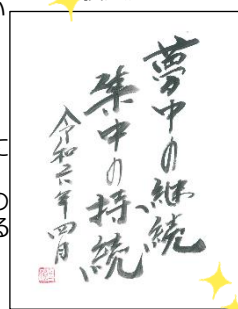 夢中の継続
集中の持続
令和六年四月
い
に
の
る